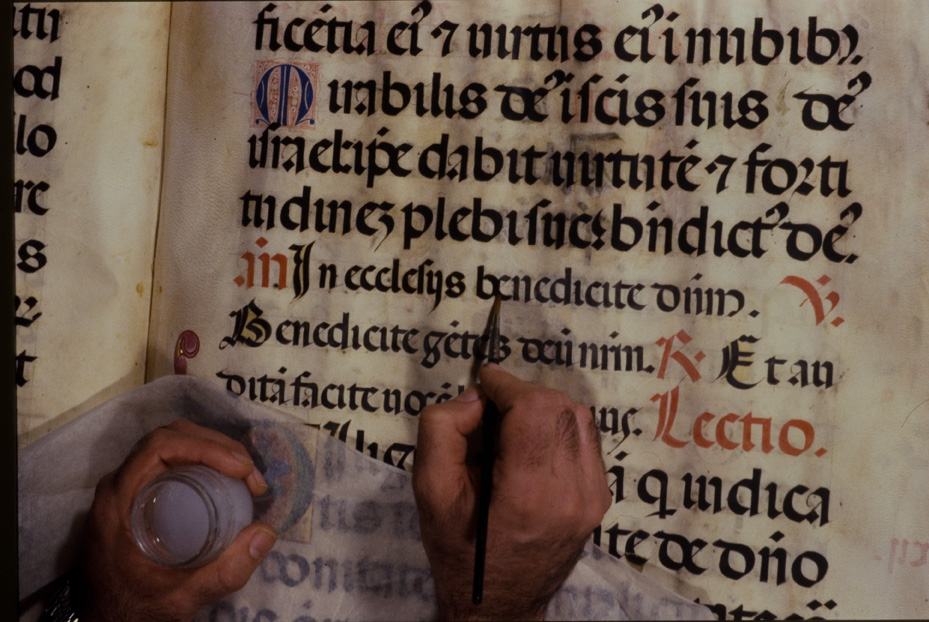 tu
od
lo
re
s
t
ficētia ei᷒ ⁊ uirtus ei᷒ i nubibꝫ.
Mirabilis de᷒ i scīs suis de᷒
israel ip̄e dabit uirtutē ⁊ forti
tudineꝫ plebi sue: bn̄dict᷒ de᷒.
añ In ecclesijs benedicite dn̄m. V.
Benedicite gētes deū nr̄m. R. Et au
ditā facite uocē
Lectio.
ā q̄ indica
te de dn̄o